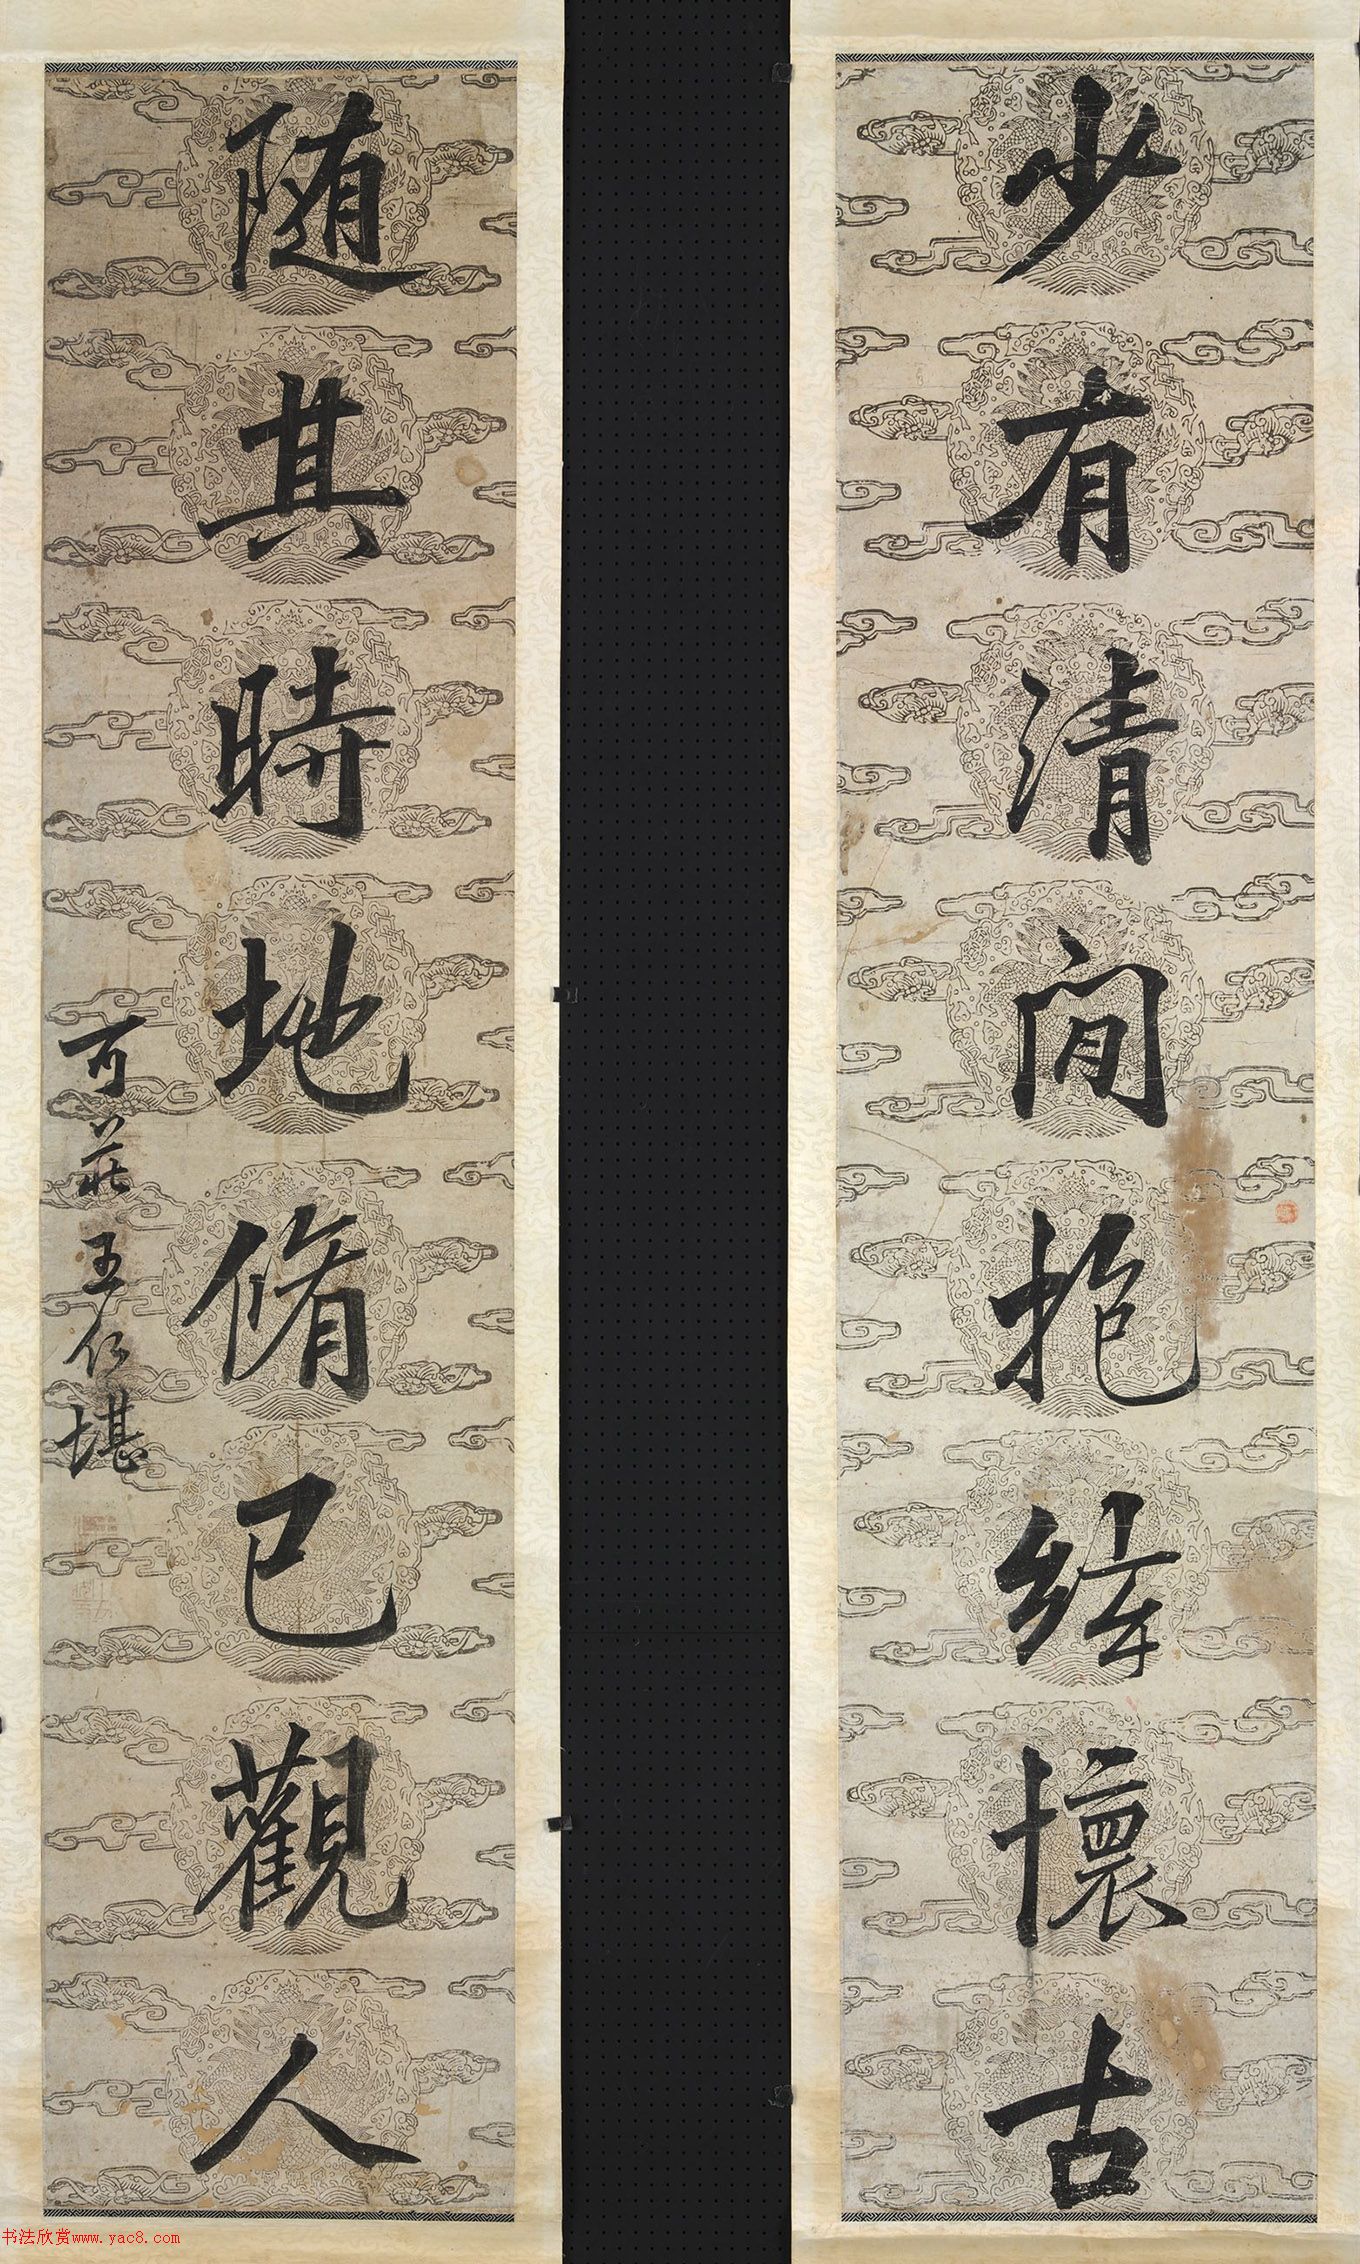 少有清間抱緯懷古
随其時地脩己觀人
可莊王仁堪
书法欣赏www.yac8.com